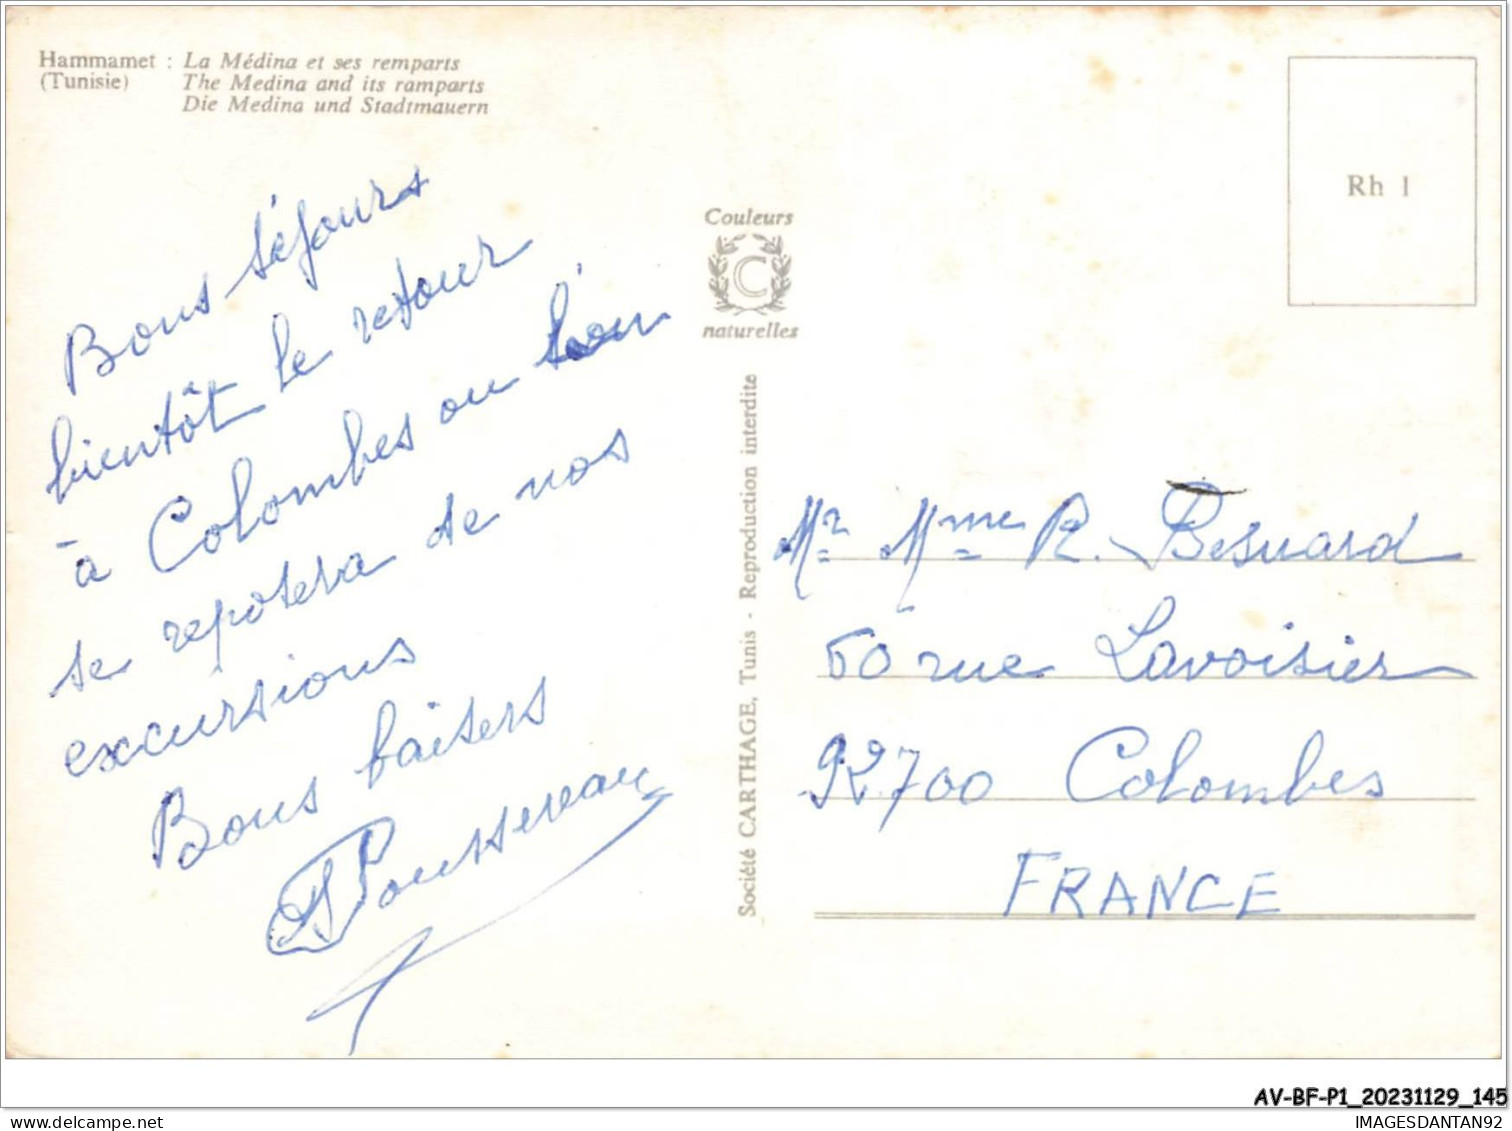 Hammamet : La Médina et ses remparts
(Tunisie) The Medina and its ramparts
Die Medina und Stadtmauern
Rh 1
Couleurs
C
naturelles
Société CARTHAGE, Tunis - Reproduction interdite
Bons séjours
bientôt le retour
à Colombes ou l'on
se reposera de nos
excursions
Bons baisers
Poussereau
Mr Mme R. Besnard
60 rue Lavoisier
92700 Colombes
FRANCE
AV-BF-P1_20231129_145
delcampe.net
IMAGESDANTAN92